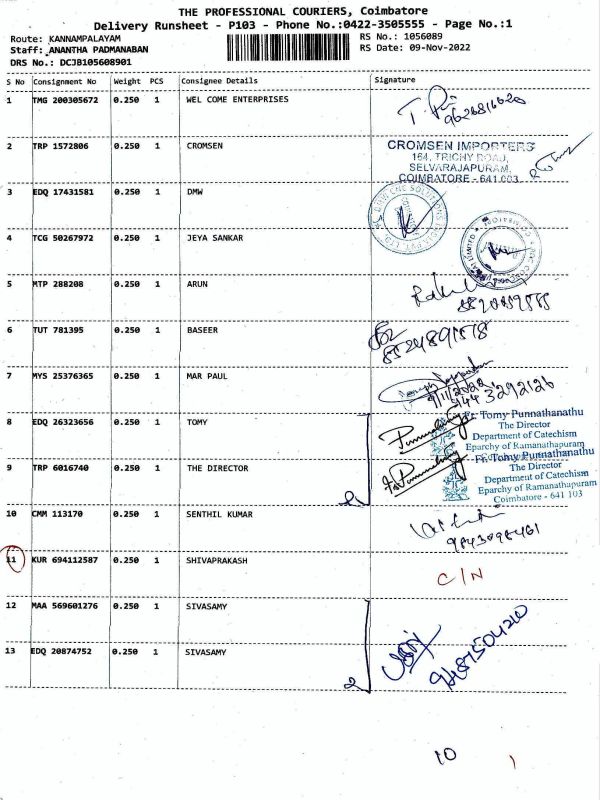 THE PROFESSIONAL COURIERS, Coimbatore
Delivery Runsheet - P103 - Phone No.:0422-3505555 - Page No.:1
Route: KANNAMPALAYAM
RS No.: 1056089
Staff: ANANTHA PADMANABAN
RS Date: 09-Nov-2022
DRS No.: DCJB105608901
S No Consignment No Weight PCS Consignee Details Signature
1 TMG 200305672 0.250 1 WEL COME ENTERPRISES
2 TRP 1572806 0.250 1 CROMSEN
CROMSEN IMPORTERS
164, TRICHY ROAD,
SELVARAJAPURAM,
COIMBATORE - 641 003
3 EDQ 17431581 0.250 1 DMW
4 TCG 50267972 0.250 1 JEYA SANKAR
5 MTP 288208 0.250 1 ARUN
6 TUT 781395 0.250 1 BASEER
7 MYS 25376365 1 0.250 MAR PAUL
9/11/2022
8 EDQ 26323656 0.250 1 TOMY
Fr. Tomy Punnathanathu
The Director
Department of Catechism
Eparchy of Ramanathapuram
9 TRP 6016740 0.250 1 THE DIRECTOR
Fr. Tomy Punnathanathu
The Director
Department of Catechism
Eparchy of Ramanathapuram
Coimbatore - 641 103
2
10 CMM 113170 0.250 1 SENTHIL KUMAR
11 KUR 694112587 0.250 1 SHIVAPRAKASH
C/N
12 MAA 569601276 0.250 1 SIVASAMY
9487504210
13 EDQ 20874752 0.250 1 SIVASAMY
2
10 1